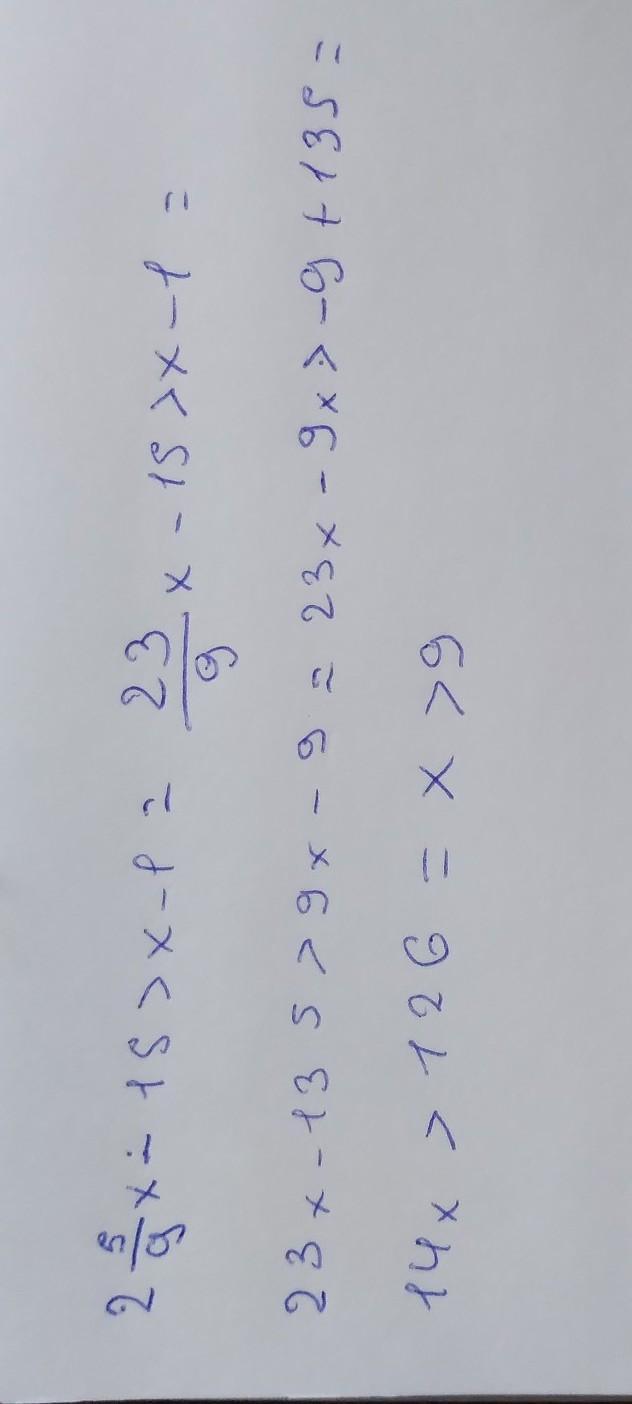 2 5/9 x - 15 > x - 1 = 23/9 x - 15 > x - 1 =
23x - 135 > 9x - 9 = 23x - 9x > -9 + 135 =
14x > 126 = x > 9